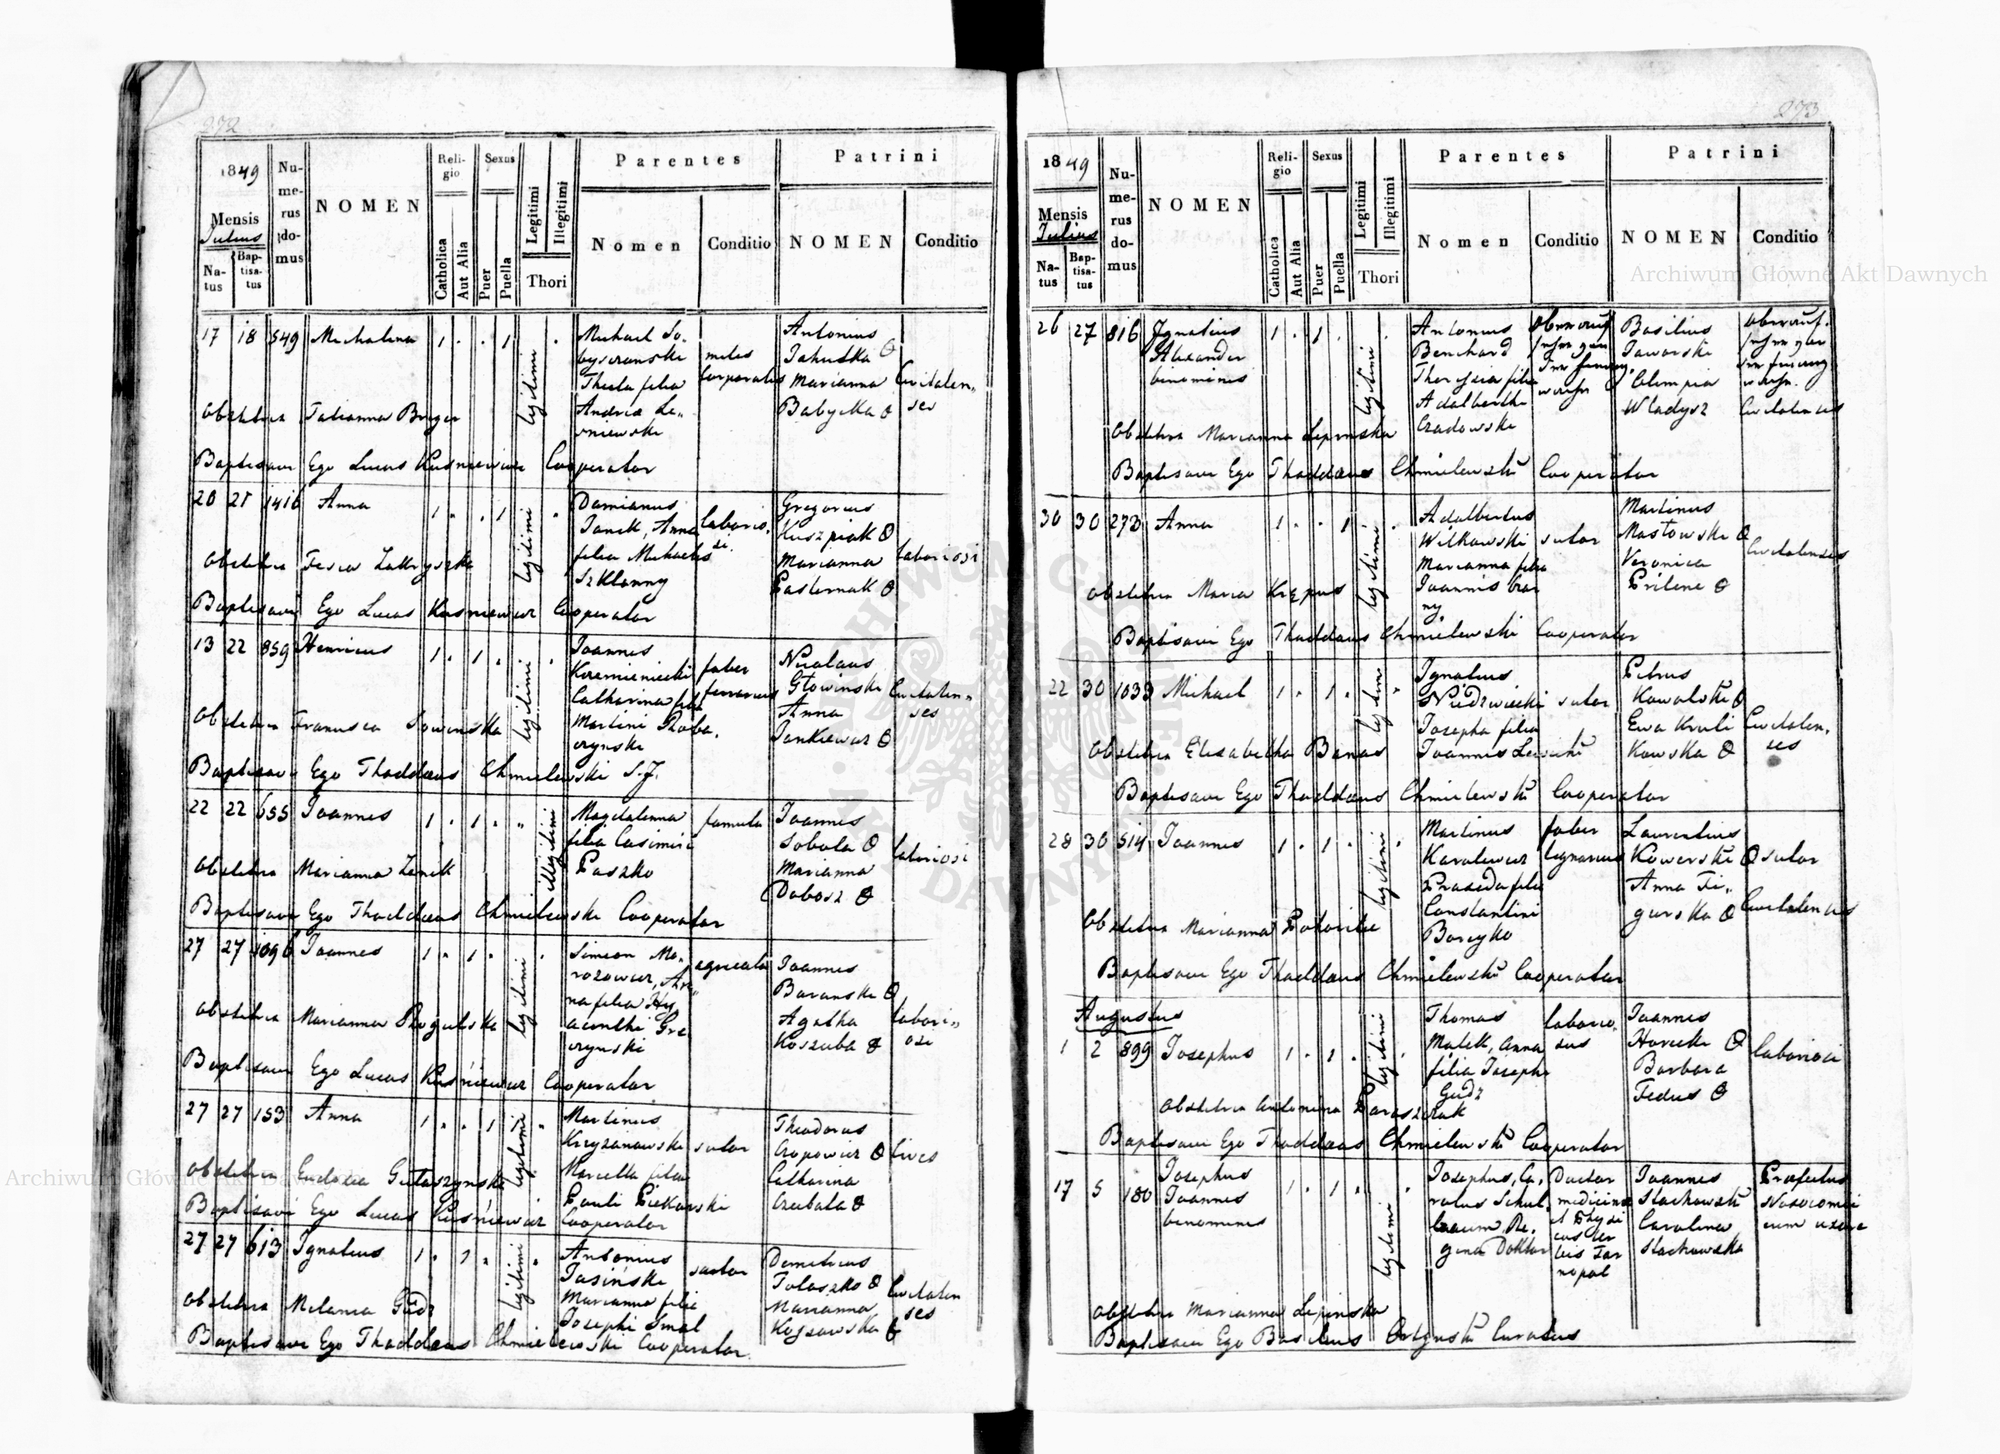 272
1849
Mensis
Julius
Natus
Baptisatus
Numerus domus
NOMEN
Religio
Catholica
Aut Alia
Sexus
Puer
Puella
Legitimi
Illegitimi
Thori
Parentes
Nomen
Conditio
Patrini
NOMEN
Conditio
17 18 549 Michalina 1 . . 1 legitimi
Michael
Thecla filia
Andreæ
miles
Corporalis
Antonius
Jakubska
Marianna
Babycka
Civitalen-
ses
Obstetrix Tatianna
Baptisavi Ego Lucas Kuśniewicz Cooperator
20 21 1416 Anna 1 . . 1 legitimi
Damianus
Janik, Anna
filia Michaelis
Szklanny
laborio.
si.
Gregorius
Kuszpiak
Marianna
Pasternak
laboriosi
Obstetrix
Baptisavi Ego Lucas Kuśniewicz Cooperator
13 22 859 Henricus 1 . 1 . legitimi
Joannes
Krzemieniecki
Catharina filia
Martini
faber
ferrarius
Nicolaus
Głowinski
Anna
Jankiewicz
Civitalen-
ses
Obstetrix Francisca Sowinska
Baptisavi Ego Thaddæus Chmielewski S.J.
22 22 655 Joannes 1 . 1 . illegitimi
Magdalenna
filia Casimiri
Paszko
famula
Joannes
Sobota
Marianna
Dobosz
laboriosi
Obstetrix Marianna Zanik
Baptisavi Ego Thaddæus Chmielewski Cooperator
27 27 1096 Joannes 1 . 1 . legitimi
Simeon Mo-
rozowicz,
na filia Hy-
acinthi
agricola
Joannes
Baranski
Agatha
Koszuba
labori-
osi
Obstetrix Marianna Rogulska
Baptisavi Ego Lucas Kuśniewicz Cooperator
27 27 153 Anna 1 . . 1 legitimi
Martinus
Krzyzanowski
Marcella filia
Pauli Piekarski
sutor
Theodorus
Catharina
Cives
Obstetrix Eudoxia
Baptisavi Ego Lucas Kuśniewicz Cooperator
27 27 613 Ignatius 1 . 1 . legitimi
Antonius
Jasiński
Marianna filia
Josephi Smal
sartor
Demetrius
Tolaszko
Marianna
Civitalen
ses
Obstetrix Melania Gudz
Baptisavi Ego Thaddæus Chmielewski Cooperator.
273
1849
Mensis
Julius
Natus
Baptisatus
Numerus domus
NOMEN
Religio
Catholica
Aut Alia
Sexus
Puer
Puella
Legitimi
Illegitimi
Thori
Parentes
Nomen
Conditio
Patrini
NOMEN
Conditio
26 27 816 Ignatius 1 . 1 . legitimi
Alexander
binominis
Antonius
Benchard
Theresia filia
Adalberti
Czadowski
Basilius
Jaworski
Olimpia
Wladysz
Civitalenses
Obstetrix Marianna Lepinska
Baptisavi Ego Thaddæus Chmielewski Cooperator
30 30 273 Anna 1 . . 1 legitimi
Adalbertus
Witkowski
Marianna filia
Joannis
sutor
Martinus
Masłowski
Veronica
Civitalenses
Obstetrix Maria
Baptisavi Ego Thaddæus Chmielewski Cooperator
22 30 1033 Michael 1 . 1 . legitimi
Ignatius
Niedzwiecki
Josepha filia
Joannis Lewicki
sutor
Petrus
Kowalski
Ewa Kruli
Kowska
Civitalen.
ses
Obstetrix Elisabetha Banas
Baptisavi Ego Thaddæus Chmielewski Cooperator
28 30 514 Joannes 1 . 1 . legitimi
Martinus
Karolewicz
Praxeda filia
Constantini
Boreyko
faber
lignarius
Laurentius
Kowerski
Anna Fi-
gurska
sutor
Civitalenses
Obstetrix Marianna
Baptisavi Ego Thaddæus Chmielewski Cooperator
Augustus
1 2 899 Josephus 1 . 1 . legitimi
Thomas
Malek, Anna
filia Josephi
Gudz
laborio-
sus
Joannes
Barbara
Fedus
laboriosi
Obstetrix Antonina
Baptisavi Ego Thaddæus Chmielewski Cooperator
17 5 180 Josephus 1 . 1 . legitimi
Joannes
binominis
Josephus, Ca-
rolus Schul-
baum, Re-
gina Doktor
Doctor
medicinæ
et Physi
cus
Tar
nopol
Joannes
Stachowski
Carolina
Stachowska
Præfectus
Nosocomii
cum uxore
Obstetrix Marianna Lepinska
Baptisavi Ego Basilius Curatus
Archiwum Główne Akt Dawnych
Archiwum Główne Akt Dawnych
ARCHIWUM GŁÓWNE AKT DAWNYCH